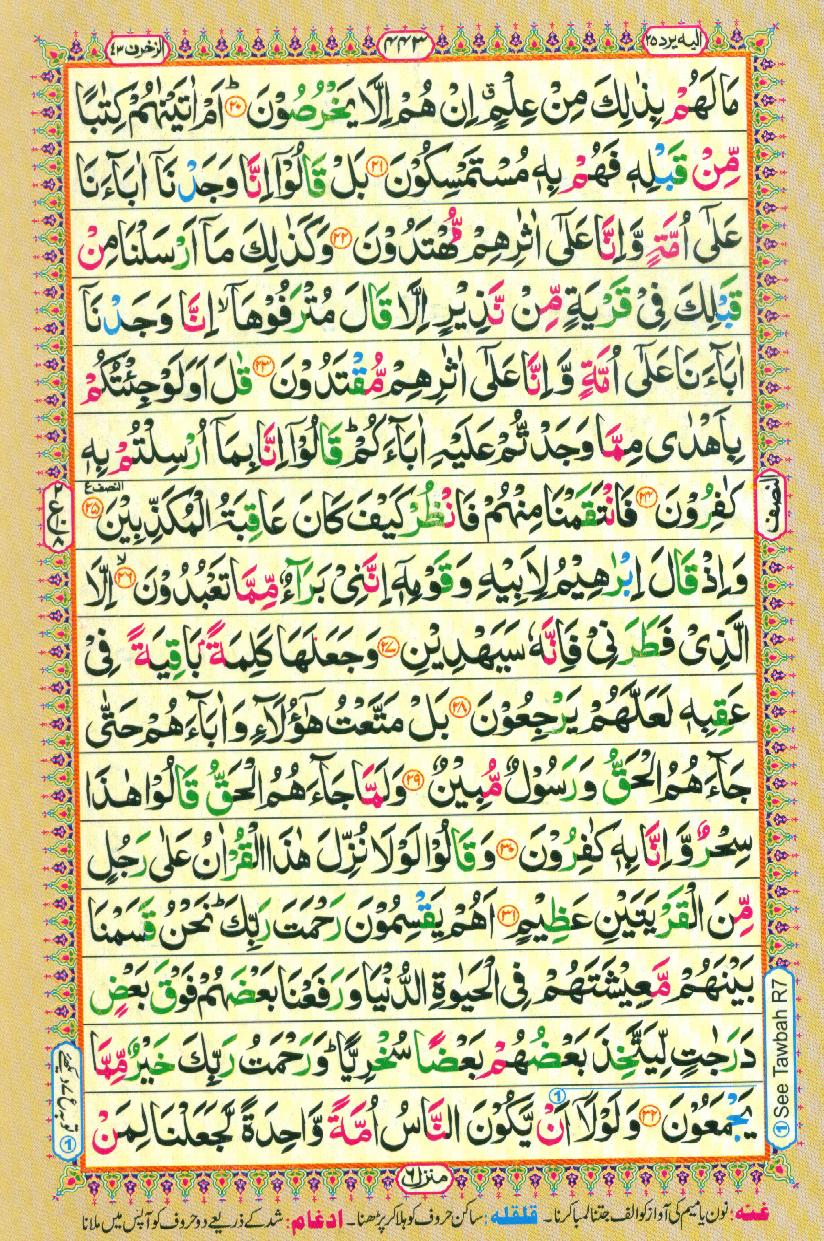 اليه يرد ٢٥
٤٤٣
الزخرف ٤٣
مَا لَهُمْ بِذٰلِكَ مِنْ عِلْمٍ ۗ اِنْ هُمْ اِلَّا يَخْرُصُوْنَ ؕ﴿۲۰﴾ اَمْ اٰتَيْنٰهُمْ كِتٰبًا
مِّنْ قَبْلِهٖ فَهُمْ بِهٖ مُسْتَمْسِكُوْنَ ﴿۲۱﴾ بَلْ قَالُوْۤا اِنَّا وَجَدْنَاۤ اٰبَآءَنَا
عَلٰۤى اُمَّةٍ وَّاِنَّا عَلٰۤى اٰثٰرِهِمْ مُّهْتَدُوْنَ ﴿۲۲﴾ وَكَذٰلِكَ مَاۤ اَرْسَلْنَا مِنْ
قَبْلِكَ فِيْ قَرْيَةٍ مِّنْ نَّذِيْرٍ اِلَّا قَالَ مُتْرَفُوْهَاۤ ۙ اِنَّا وَجَدْنَاۤ
اٰبَآءَنَا عَلٰۤى اُمَّةٍ وَّاِنَّا عَلٰۤى اٰثٰرِهِمْ مُّقْتَدُوْنَ ﴿۲۳﴾ قٰلَ اَوَلَوْ جِئْتُكُمْ
بِاَهْدٰى مِمَّا وَجَدْتُّمْ عَلَيْهِ اٰبَآءَكُمْ ؕ قَالُوْۤا اِنَّا بِمَاۤ اُرْسِلْتُمْ بِهٖ
كٰفِرُوْنَ ﴿۲۴﴾ فَانْتَقَمْنَا مِنْهُمْ فَانْظُرْ كَيْفَ كَانَ عَاقِبَةُ الْمُكَذِّبِيْنَ ﴿۲۵﴾
النصف
وَاِذْ قَالَ اِبْرٰهِيْمُ لِاَبِيْهِ وَقَوْمِهٖۤ اِنَّنِيْ بَرَآءٌ مِّمَّا تَعْبُدُوْنَ ۙ﴿۲۶﴾ اِلَّا
الَّذِيْ فَطَرَنِيْ فَاِنَّهٗ سَيَهْدِيْنِ ﴿۲۷﴾ وَجَعَلَهَا كَلِمَةً ۢ بَاقِيَةً فِيْ
عَقِبِهٖ لَعَلَّهُمْ يَرْجِعُوْنَ ﴿۲۸﴾ بَلْ مَتَّعْتُ هٰۤؤُلَآءِ وَاٰبَآءَهُمْ حَتّٰى
جَآءَهُمُ الْحَقُّ وَرَسُوْلٌ مُّبِيْنٌ ﴿۲۹﴾ وَلَمَّا جَآءَهُمُ الْحَقُّ قَالُوْا هٰذَا
سِحْرٌ وَّاِنَّا بِهٖ كٰفِرُوْنَ ﴿۳۰﴾ وَقَالُوْا لَوْلَا نُزِّلَ هٰذَا الْقُرْاٰنُ عَلٰى رَجُلٍ
مِّنَ الْقَرْيَتَيْنِ عَظِيْمٍ ﴿۳۱﴾ اَهُمْ يَقْسِمُوْنَ رَحْمَتَ رَبِّكَ ؕ نَحْنُ قَسَمْنَا
بَيْنَهُمْ مَّعِيْشَتَهُمْ فِي الْحَيٰوةِ الدُّنْيَا وَرَفَعْنَا بَعْضَهُمْ فَوْقَ بَعْضٍ
دَرَجٰتٍ لِّيَتَّخِذَ بَعْضُهُمْ بَعْضًا سُخْرِيًّا ؕ وَرَحْمَتُ رَبِّكَ خَيْرٌ مِّمَّا
يَجْمَعُوْنَ ﴿۳۲﴾ وَلَوْلَاۤ ① اَنْ يَّكُوْنَ النَّاسُ اُمَّةً وَّاحِدَةً لَّجَعَلْنَا لِمَنْ
① See Tawbah R7
منزل ٦
غنه: نون یا میم کی آواز کو الف جتنا لمبا کرنا۔ قلقله: ساکن حروف کو ہلا کر پڑھنا۔ ادغام: شد کے ذریعے دو حروف کو آپس میں ملانا